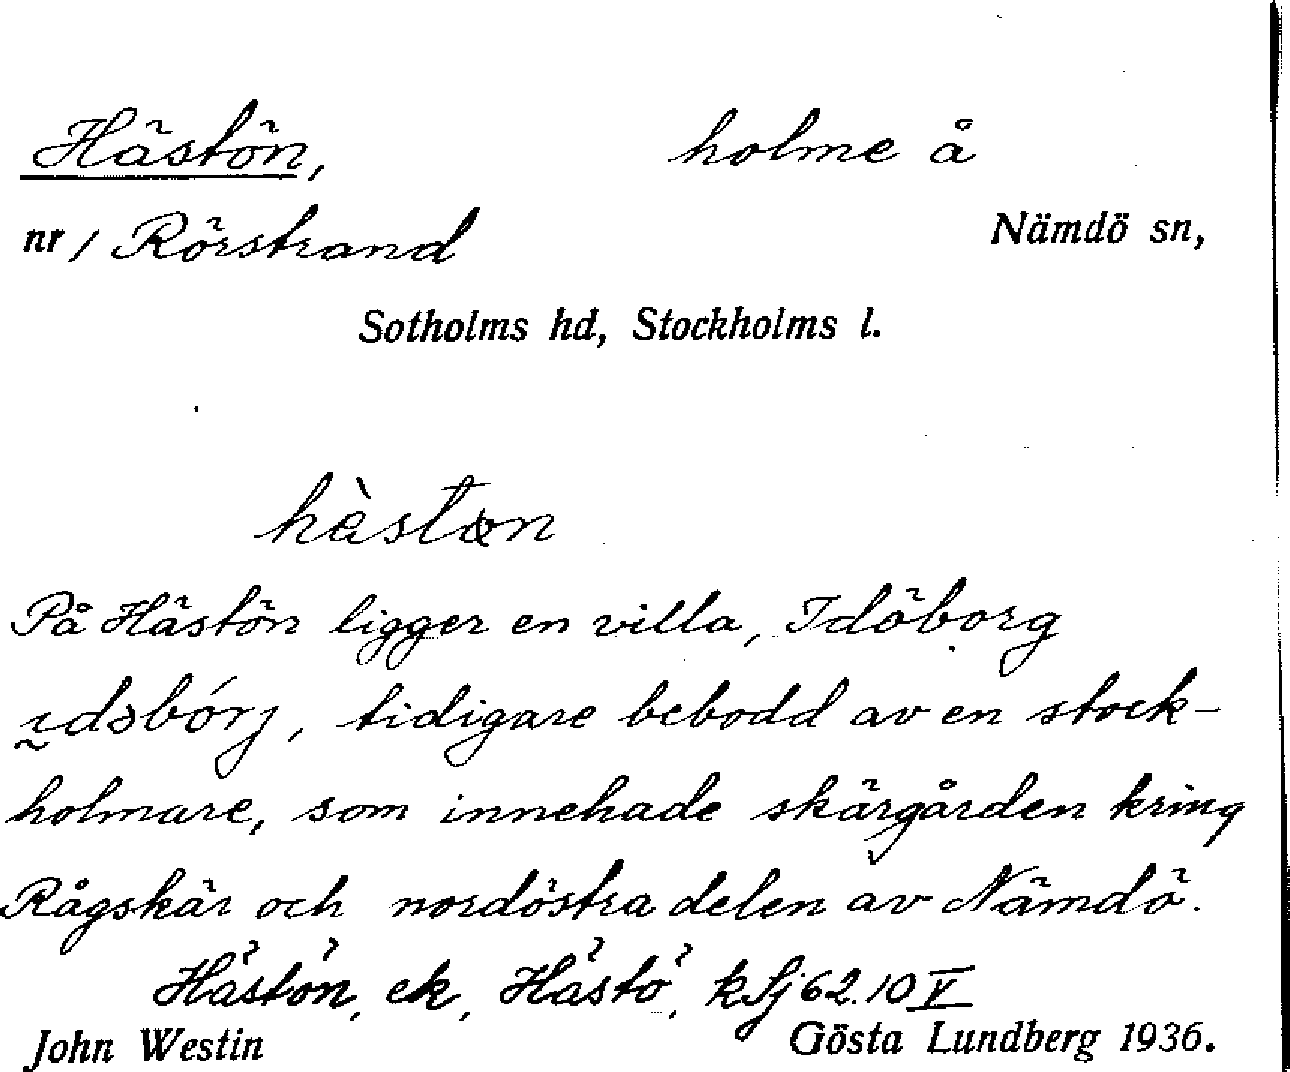 Hästön, holme å
nr 1 Rörstrand Nämdö sn,
Sotholms hd, Stockholms l.
hàstøn
På Hästön ligger en villa, Idöborg
, tidigare bebodd av en stock-
holmare, som innehade skärgården kring
Rågskär och nordöstra delen av Nämdö.
Hästön, ek, Hästö, k Sj 62.10 V
John Westin Gösta Lundberg 1936.